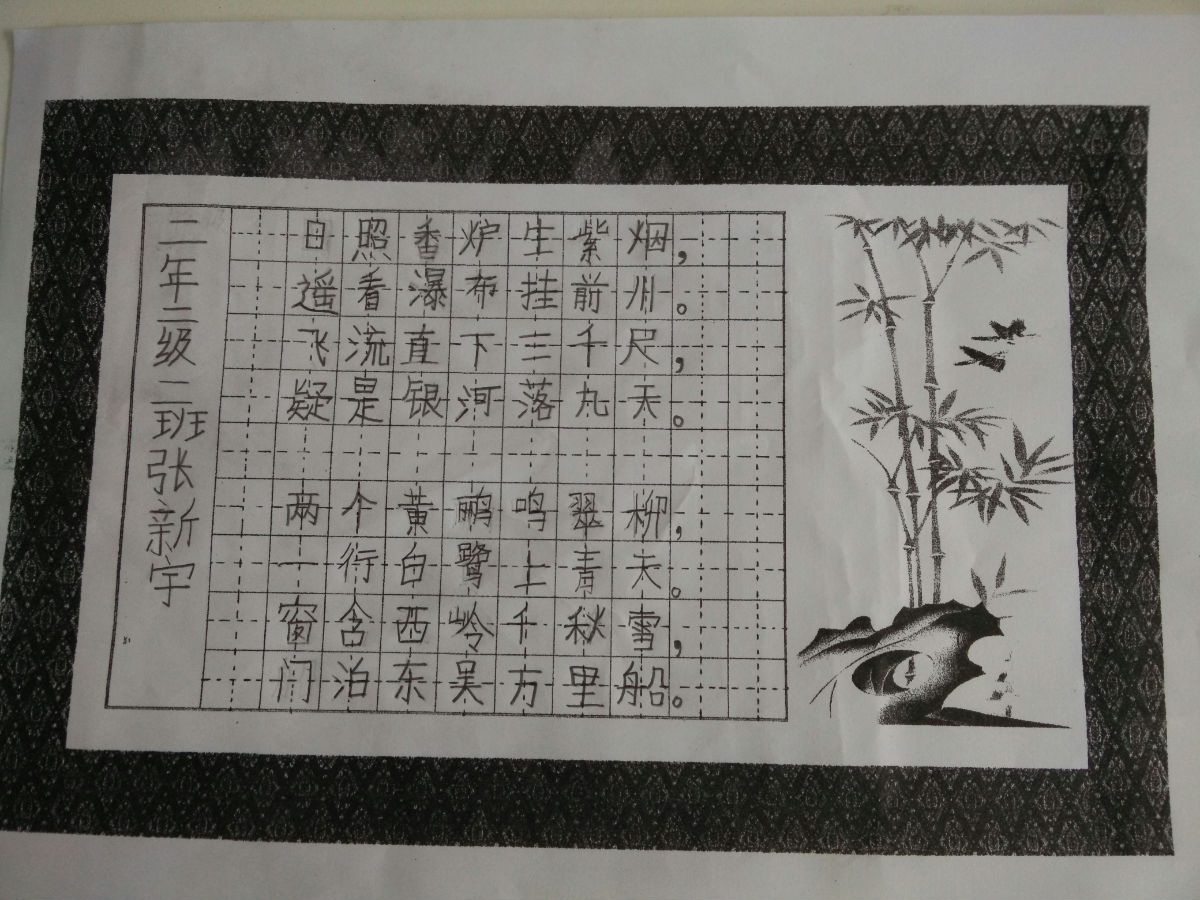 二年二级二班张新宇
日照香炉生紫烟，
遥看瀑布挂前川。
飞流直下三千尺，
疑是银河落九天。
两个黄鹂鸣翠柳，
一行白鹭上青天。
窗含西岭千秋雪，
门泊东吴方里船。